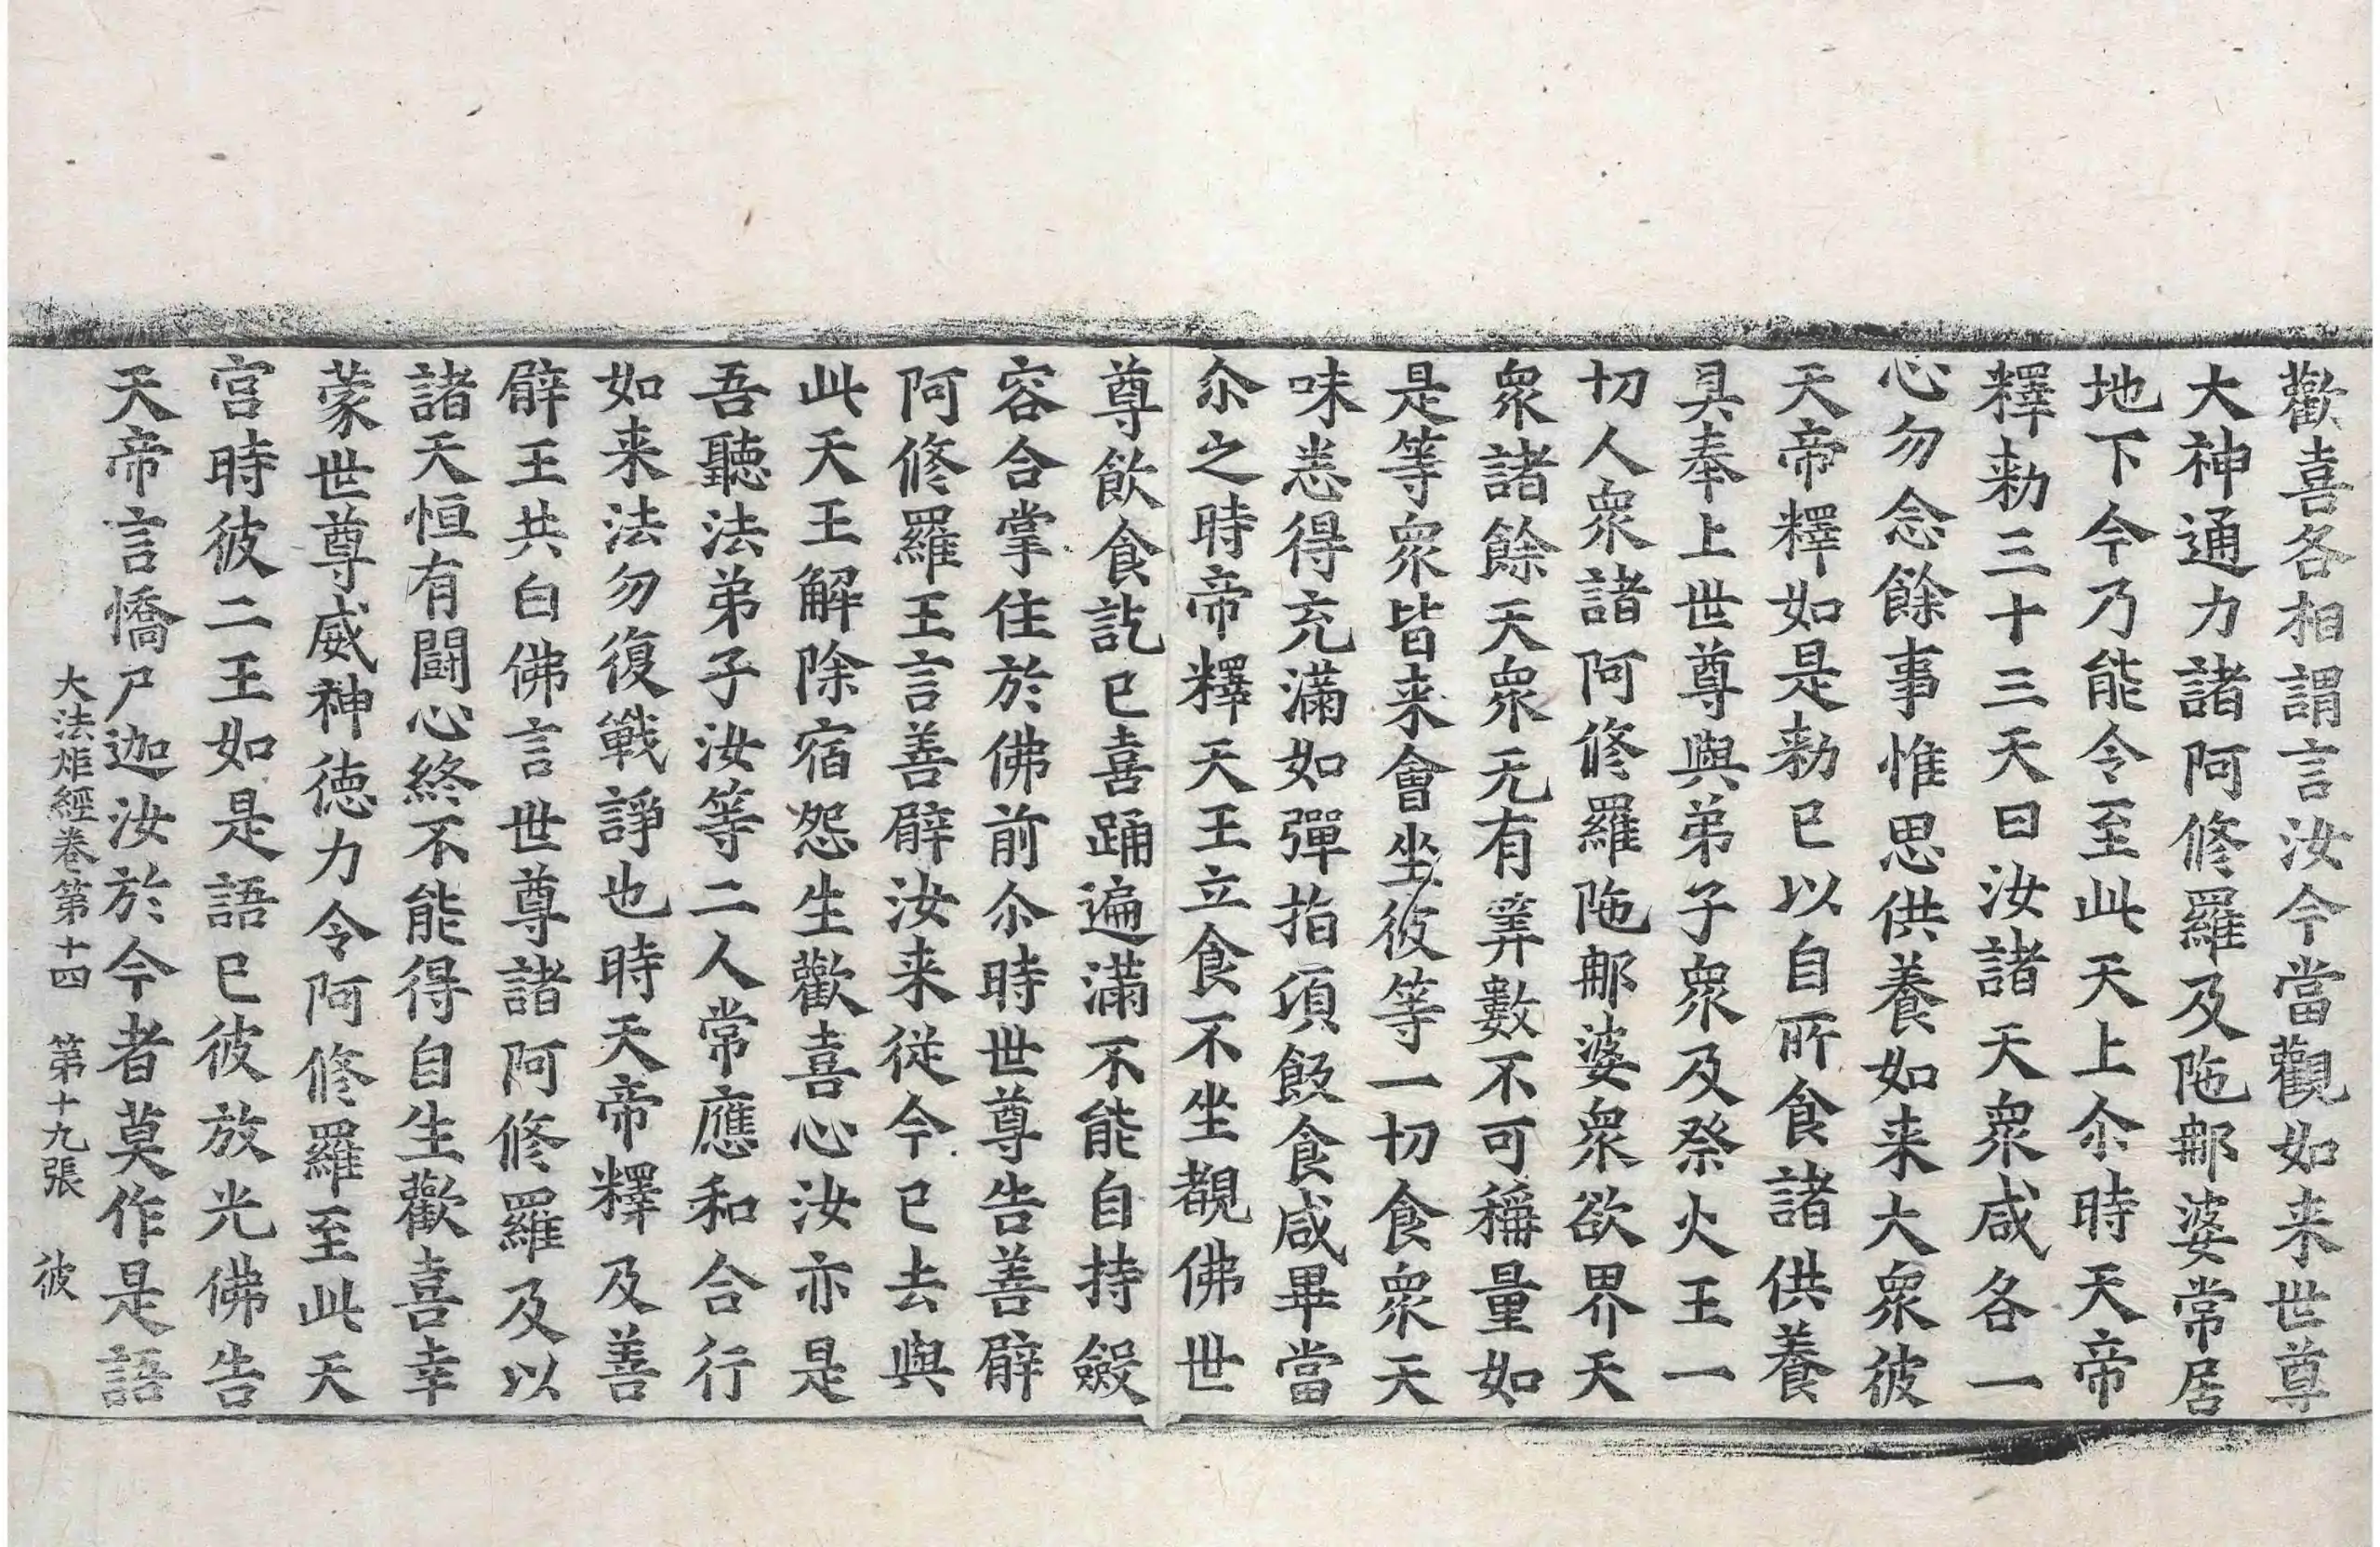 歡喜各相謂言汝今當觀如来世尊
大神通力諸阿修羅及陁𨚗婆常居
地下今乃能令至此天上尒時天帝
釋勑三十三天曰汝諸天衆咸各一
心勿念餘事惟思供養如来大衆彼
天帝釋如是勑已以自所食諸供養
具奉上世尊與弟子衆及祭火王一
切人衆諸阿修羅陁𨚗婆衆欲界天
衆諸餘天衆无有筭數不可稱量如
是等衆皆来會坐彼等一切食衆天
味悉得充滿如彈指頃飲食咸畢當
尒之時帝釋天王立食不坐覩佛世
尊飲食訖已喜踊遍滿不能自持斂
容合掌住於佛前尒時世尊告善臂
阿修羅王言善臂汝来従今已去與
此天王解除宿怨生歡喜心汝亦是
吾聽法弟子汝等二人常應和合行
如来法勿復戰諍也時天帝釋及善
臂王共白佛言世尊諸阿修羅及以
諸天恒有鬪心終不能得自生歡喜幸
蒙世尊威神徳力令阿修羅至此天
宫時彼二王如是語已彼放光佛告
天帝言憍尸迦汝於今者莫作是語
大法炬經卷第十四 第十九張 彼